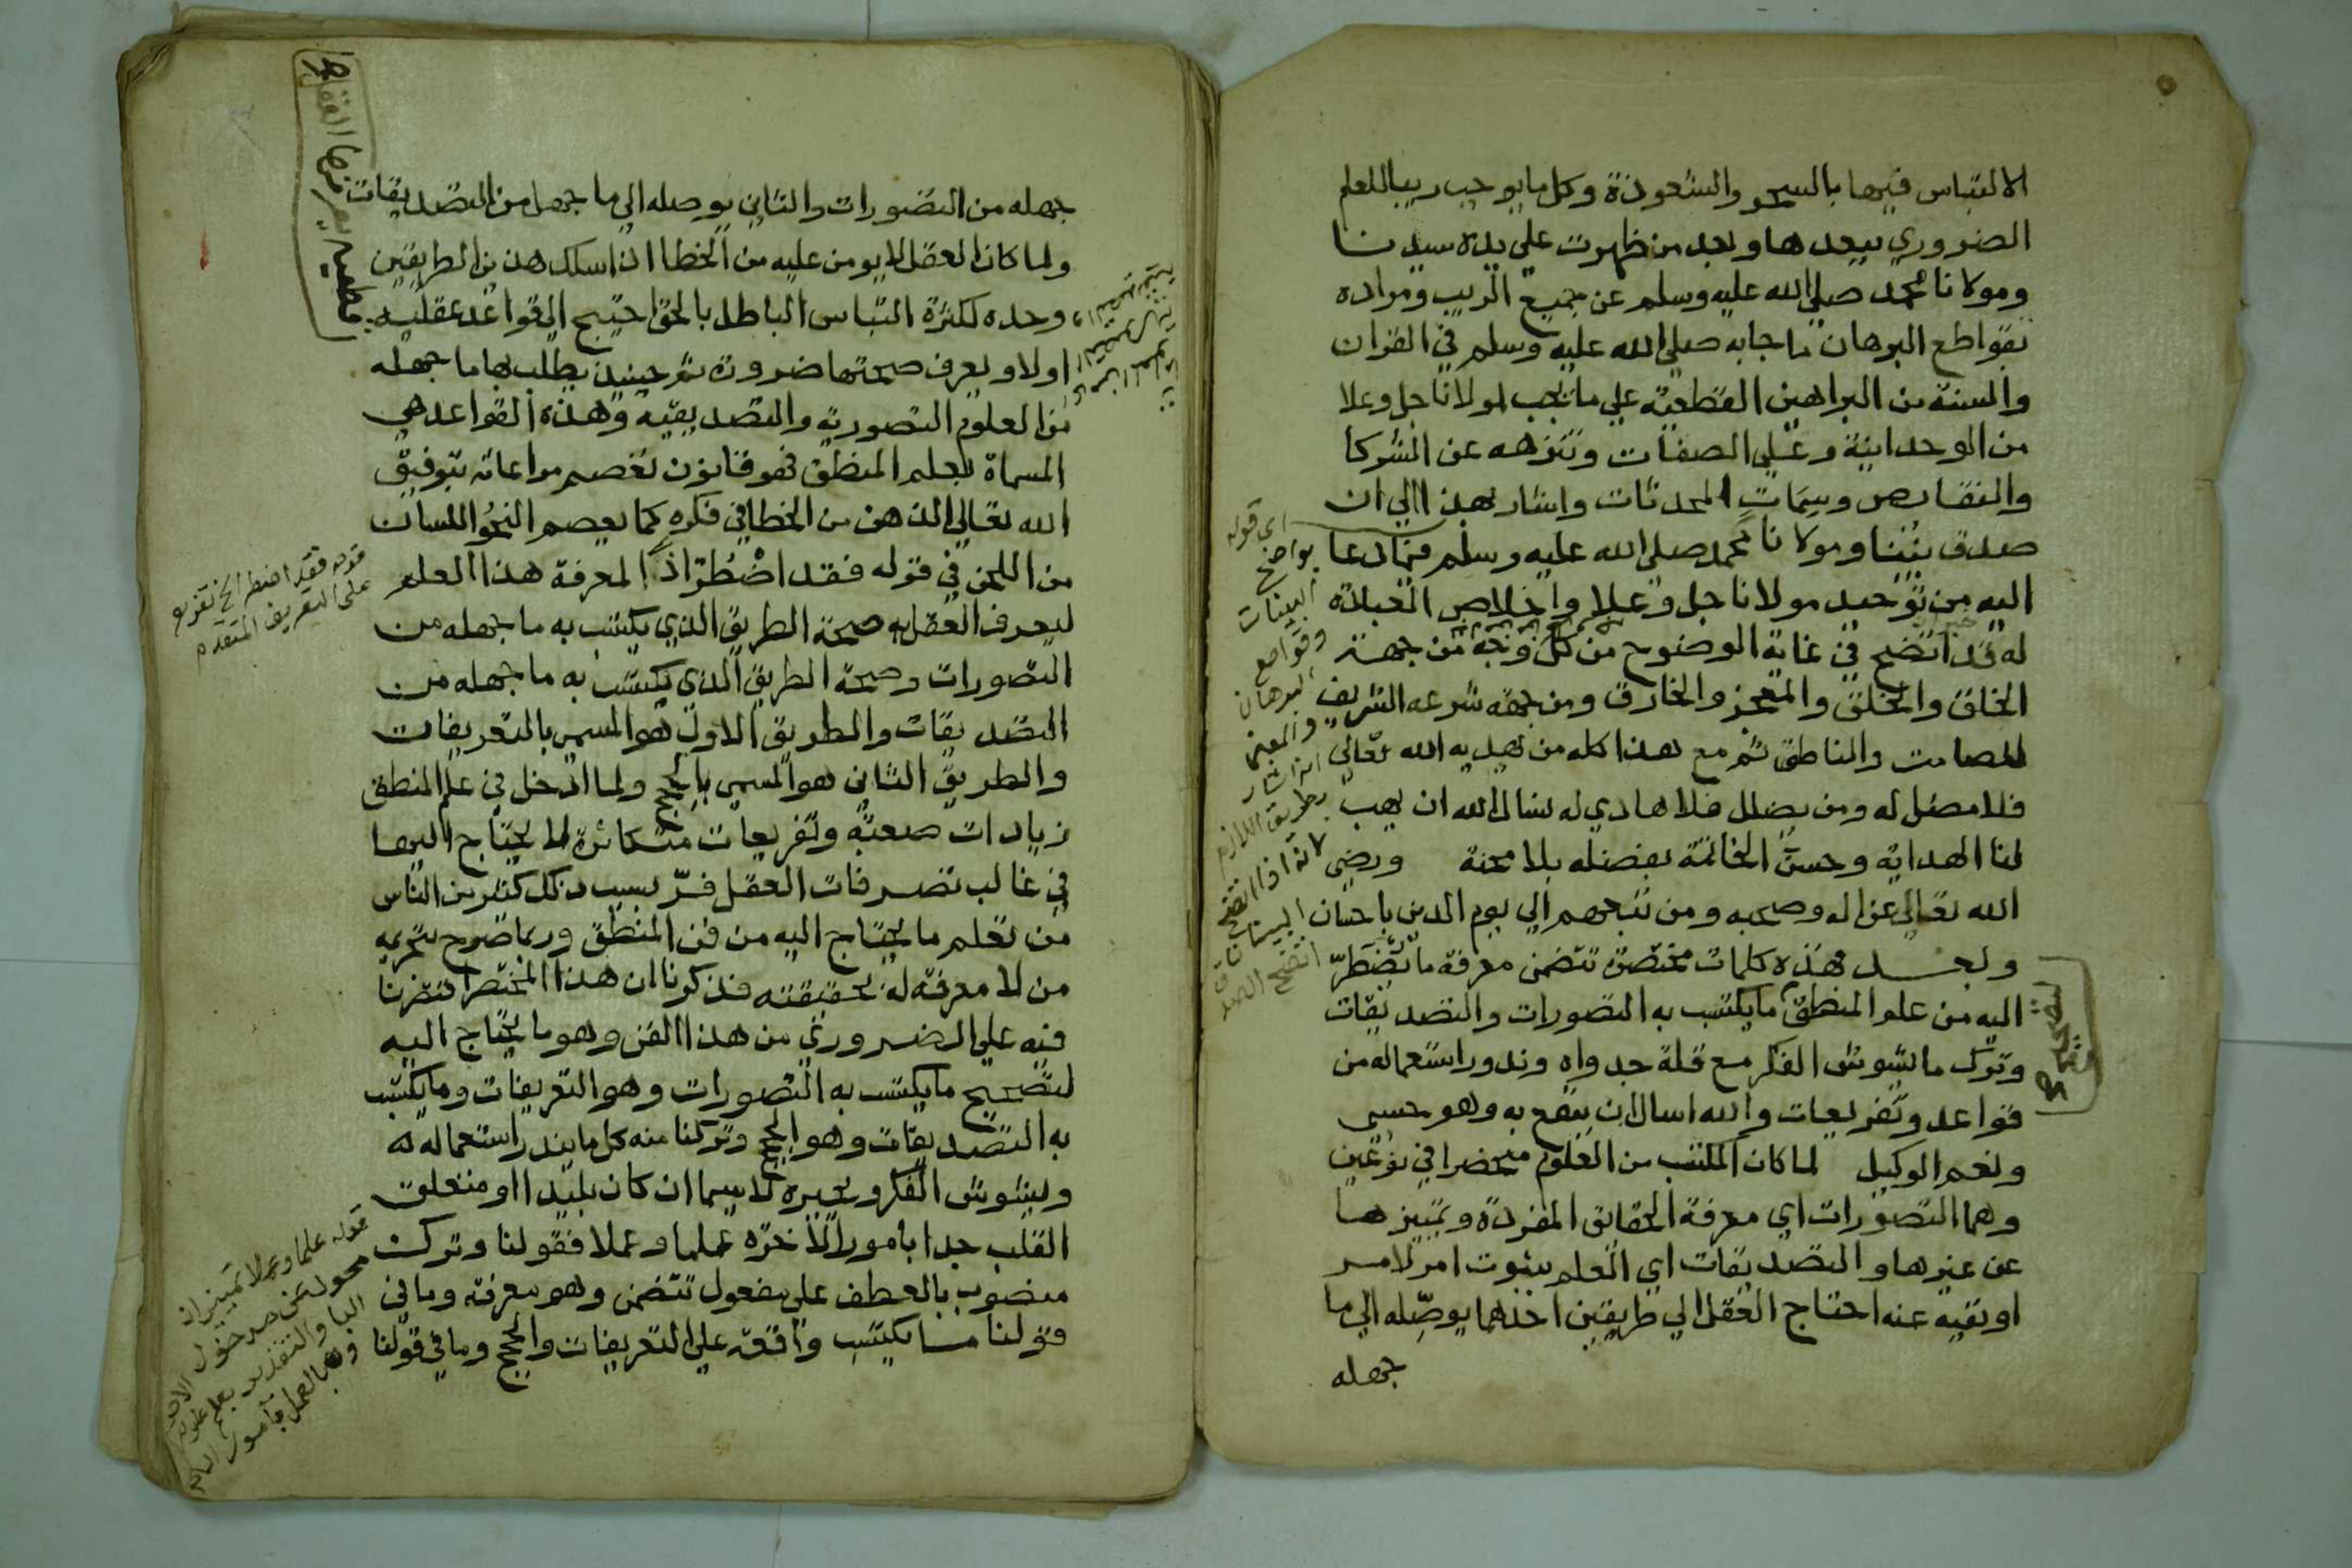 الالتباس فيها بالسحر والشعوذة وكل ما يوجب ريبا للعلم
الضروري ببعدها وبعد من ظهرت على يده سيدنا
ومولانا محمد صلى الله عليه وسلم عن جميع الريب ومراده
بقواطع البرهان ما جا به صلى الله عليه وسلم في القران
والسنة من البراهين القطعية على ما يجب لمولانا جل وعلا
من الوحدانية وعلى الصفات وتنزهه عن الشركا
والنقايص وسمات المحدثات واشار بهذا الى ان
صدق نبينا ومولانا محمد صلى الله عليه وسلم فيما دعا
اليه من توحيد مولانا جل وعلا واخلاص العبادة
له قد اتضح في غاية الوضوح من كل وجه من جهة
الخلق والخلق والمعجز والخارق ومن جهة شرعه الشريف
الصامت والناطق ثم مع هذا كله من يهديه الله تعالى
فلا مضل له ومن يضلل فلا هادي له نسال الله ان يهب
لنا الهداية وحسن الخاتمة بفضله بلا محنة ورضي
الله تعالى عن اله وصحبه ومن تبعهم الى يوم الدين باحسان
وبعد فهذه كلمات مختصرة تتضمن معرفة ما تضطر
اليه من علم المنطق ما يكتسب به التصورات والتصديقات
وترك ما يشوش الفكر مع قلة جدواه وندور استعماله من
قواعد وتفريعات والله اسال ان ينفع به وهو حسبي
ونعم الوكيل لما كان المكتسب من العلوم منحصرا في نوعين
وهما التصورات اي معرفة الحقايق المفردة وتمييزها
عن غيرها والتصديقات اي العلم بثبوت امر لامر
او نفيه عنه احتاج العقل الى طريقين احدهما يوصله الى ما
جهله
اي قوله
بواضح
البينات
وقواطع
البرهان
اتضح الصدق
جهله من التصورات والثاني يوصله الى ما جهل من التصديقات
ولما كان العقل لا يومن عليه من الخطا اذا سلك هذين الطريقين
وحده لكثرة التباس الباطل بالحق احتيج الى قواعد عقليه
اولا ويعرف صحتها ضرورة ثم حينيذ يطلب بها ما جهله
من العلوم التصورية والتصديقيه وهذه القواعد هي
المسماة بعلم المنطق فهو قانون تعصم مراعاته بتوفيق
الله تعالى الذهن من الخطا في فكره كما يعصم النحو اللسان
من اللحن في قوله فقد اضطر اذا لمعرفة هذا العلم
ليعرف العقل به صحة الطريق الذي يكتسب به ما جهله من
التصورات وصحة الطريق الذي يكتسب به ما جهله من
التصديقات والطريق الاول هو المسمى بالتعريفات
والطريق الثاني هو المسمى بالحجج ولما ادخل في علم المنطق
زيادات صعبة وتفريعات متكاثرة لا يحتاج اليها
في غالب تصرفات العقل فر بسبب ذلك كثير من الناس
من تعلم ما يحتاج اليه من فن المنطق وربما صرح بتحريمه
من لا معرفة له بحقيقته فذكرنا ان هذا المختصر اقتصرنا
فيه على الضروري من هذا الفن وهو ما يحتاج اليه
لتصحيح ما يكتسب به التصورات وهو التعريفات وما يكتسب
به التصديقات وهو الحجج وتركنا منه كل ما يندر استعماله
ويشوش الفكر ويحيره لا سيما ان كان بليدا او متعلق
القلب جدا بامور الاخرة علما وعملا فقولنا وتركت
منصوب بالعطف على مفعول تتضمن وهو معرفة وما في
قولنا ما يكتسب واقعة على التعريفات والحجج وما في قولنا
قوله فقد اضطر الخ تفريع
على التعريف المتقدم
قوله علما وعملا تمييزان